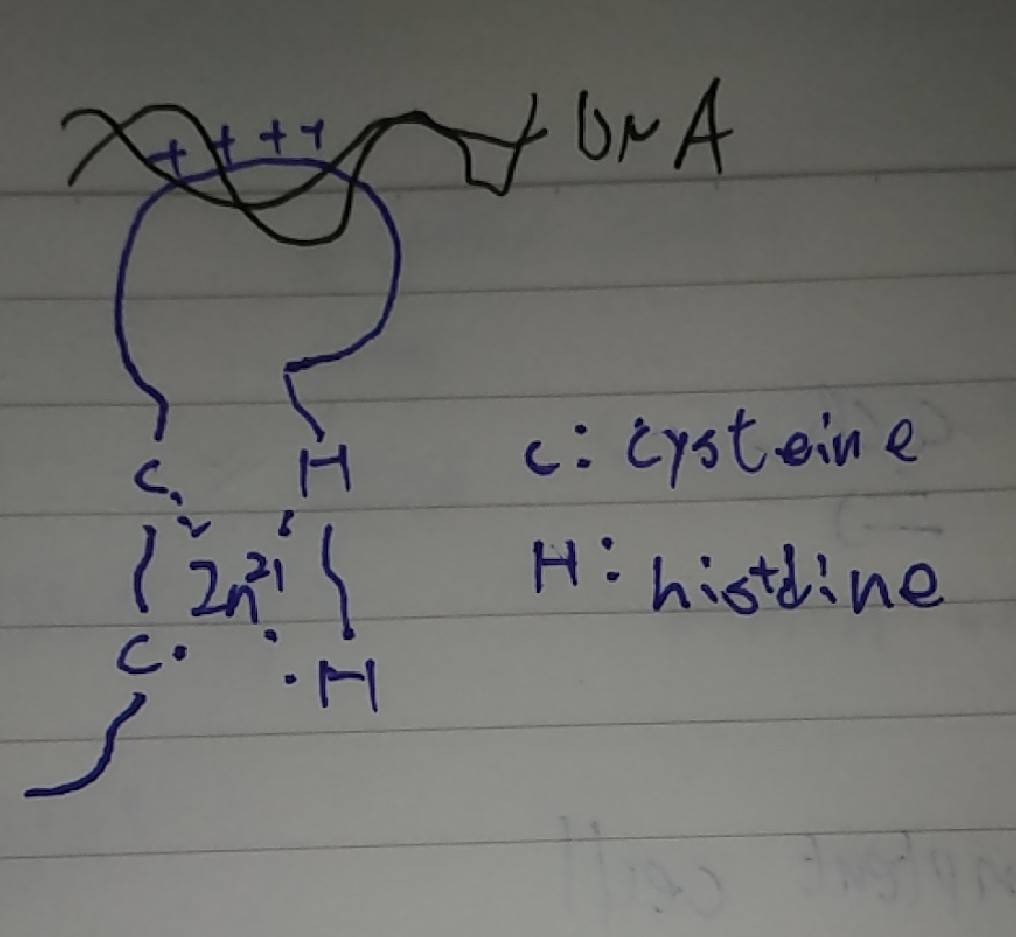 + + + +
DNA
C H
Zn²⁺
C H
C: Cysteine
H: histdine